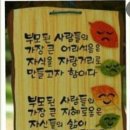 부모된 사람들의
가장 큰 어리석음은
자식을 자랑거리로
만들고자 함이다
부모된 사람들의
가장 큰 지혜로움은
자신들의 삶이